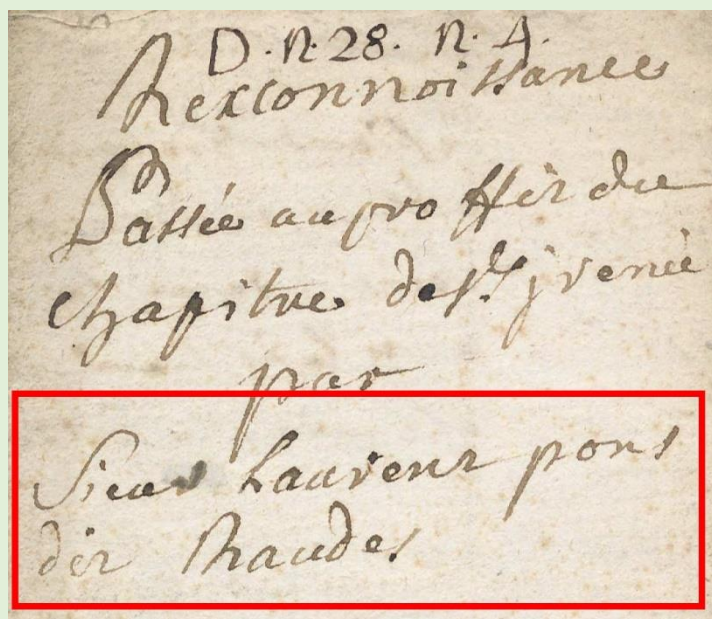 D. n. 28. n. 4.
Rexconnoissance
Passée au proffit du
chapitre de st jrenée
par
Sieur Laurent pons
dit Raudes